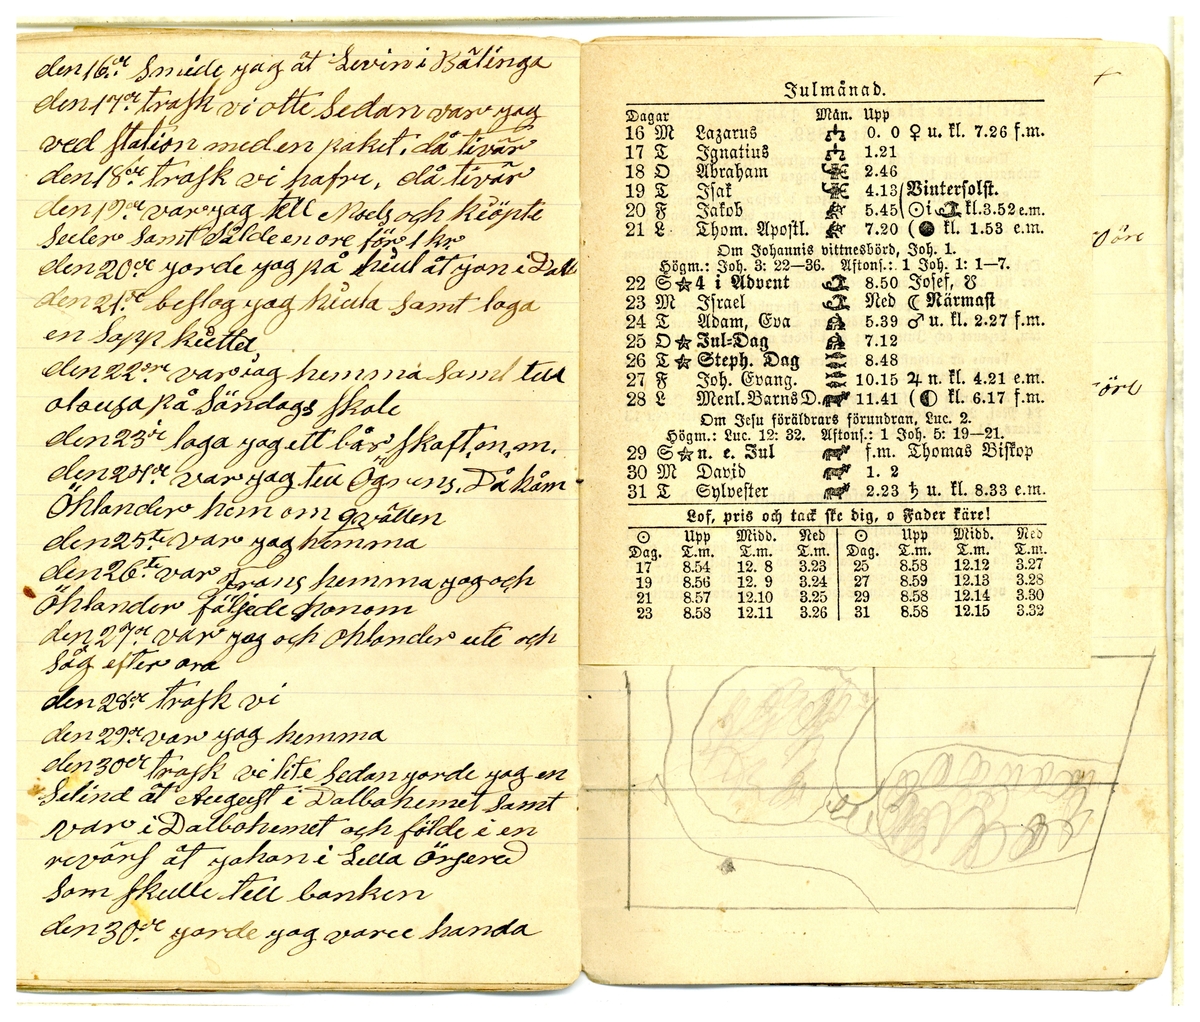 den 16de smide jag åt Levin i Bälinga
den 17de trask vi otte sedan var jag
ved station med en paket. då tivär
den 18de trask vi hafre, då tivär
den 19de var jag till Moels och kiöpte
seiler samt sålde en ore för 1 kr
den 20de jorde jag på hiul åt jon i Dal
den 21de beslog jag hiula samt laga
en sopp
den 22dre var jag hemma samt till
på söndags skole
den 23de laga jag ett bår skaft m, m.
den 24de var jag till Ögrens. Då kåm
Öhlander hem om qvällen
den 25te var jag hemma
den 26te var Frans hemma jag och
Öhlander följede honom
den 27de var jag och Ohlander ute och
såg efter ora
den 28de trask vi
den 29de var jag hemma
den 30de trask vi lite sedan jorde jag en
Selind åt August i Dalbohemet samt
var i Dalbohemet och földe i en
revärs åt johan i Lella Örsered
som skulle till banken
den 30de jorde jag varie handa
Julmånad.
Dagar Mån. Upp
16 M Lazarus 0. 0 ♀ u. kl. 7.26 f.m.
17 T Ignatius 1.21
18 O Abraham 2.46
19 T Isak 4.13 Vintersolst.
20 F Jakob 5.45 ☉ i ♑ kl. 3.52 e.m.
21 L Thom. Apostl. 7.20 (● kl. 1.53 e.m.
Om Johannis vittnesbörd, Joh. 1.
Högm.: Joh. 3: 22—36. Aftons.: 1 Joh. 1: 1—7.
22 S ☆ 4 i Advent 8.50 Josef, ☋
23 M Israel Ned ☾ Närmast
24 T Adam, Eva 5.39 ♂ u. kl. 2.27 f.m.
25 O ☆ Jul-Dag 7.12
26 T ☆ Steph. Dag 8.48
27 F Joh. Evang. 10.15 ♃ n. kl. 4.21 e.m.
28 L Menl. Barns D. 11.41 (◐ kl. 6.17 f.m.
Om Jesu föräldrars förundran, Luc. 2.
Högm.: Luc. 12: 32. Aftons.: 1 Joh. 5: 19—21.
29 S ☆ n. e. Jul f.m. Thomas Biskop
30 M David 1. 2
31 T Sylvester 2.23 ♄ u. kl. 8.33 e.m.
Lof, pris och tack ske dig, o Fader käre!
☉ Upp Midd. Ned ☉ Upp Midd. Ned
Dag. T.m. T.m. T.m. Dag. T.m. T.m. T.m.
17 8.54 12. 8 3.23 25 8.58 12.12 3.27
19 8.56 12. 9 3.24 27 8.59 12.13 3.28
21 8.57 12.10 3.25 29 8.58 12.14 3.30
23 8.58 12.11 3.26 31 8.58 12.15 3.32
öre
öre